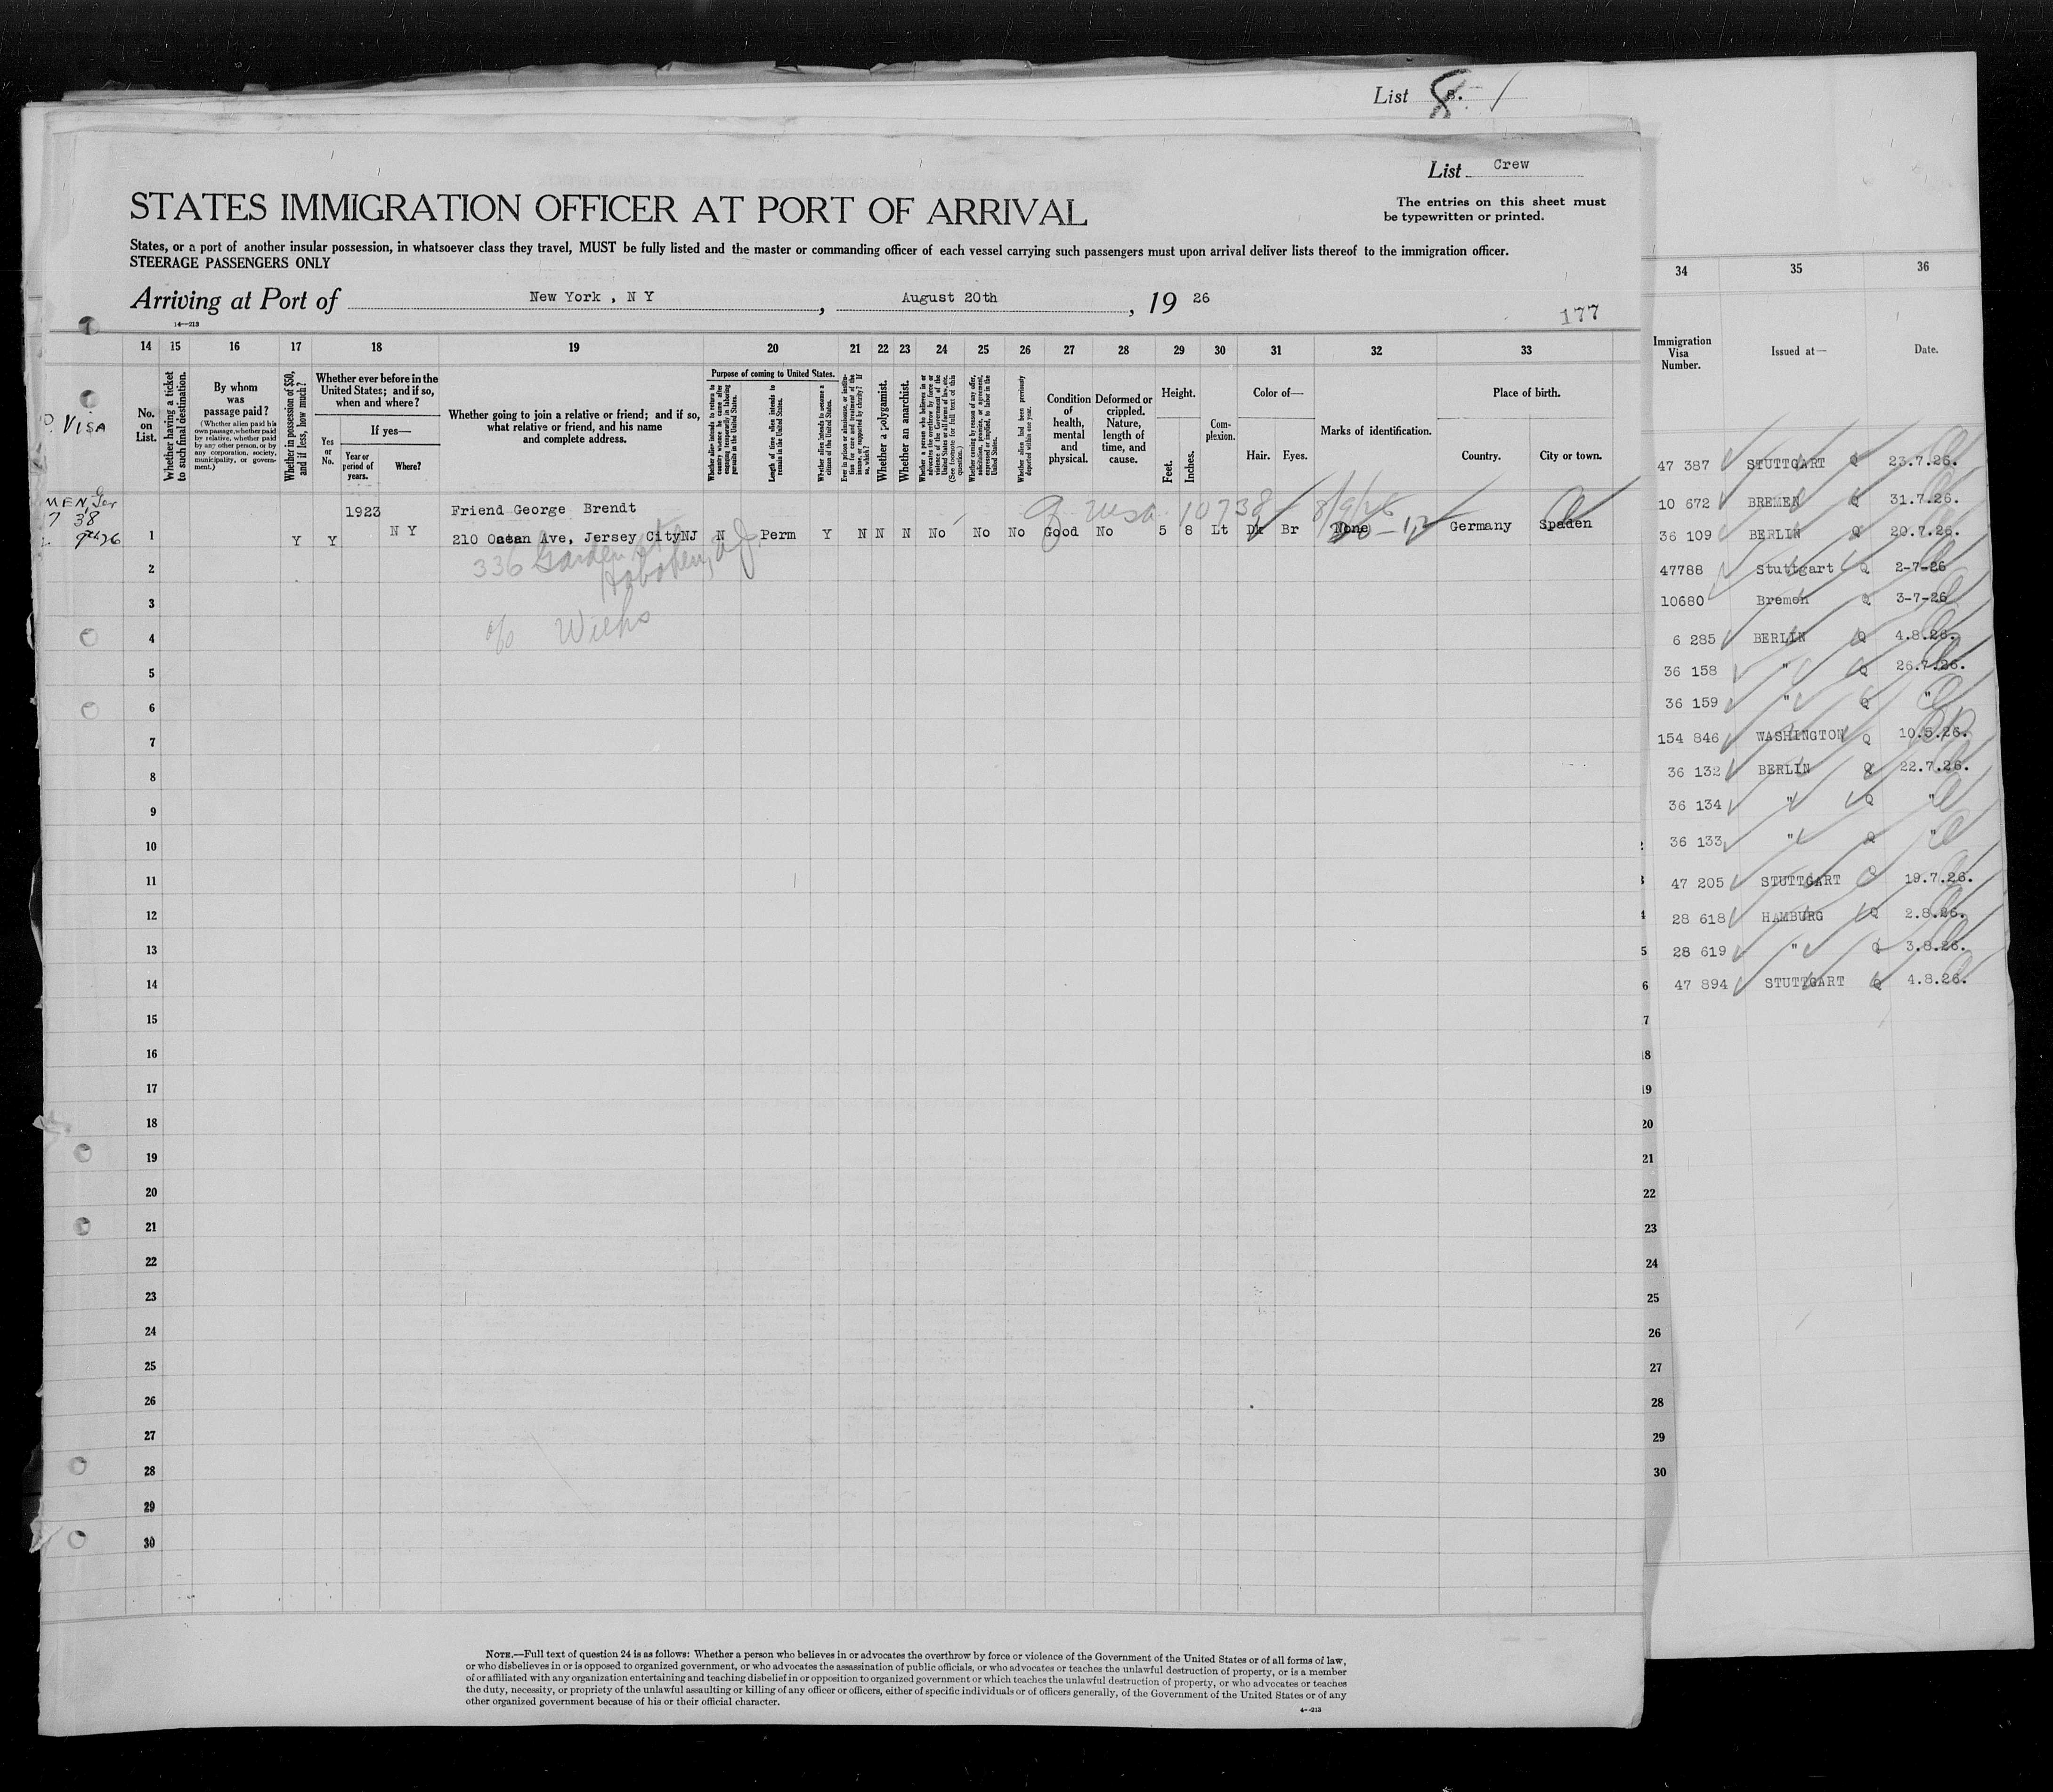 List 8. 1
List Crew
STATES IMMIGRATION OFFICER AT PORT OF ARRIVAL
The entries on this sheet must
be typewritten or printed.
States, or a port of another insular possession, in whatsoever class they travel, MUST be fully listed and the master or commanding officer of each vessel carrying such passengers must upon arrival deliver lists thereof to the immigration officer.
STEERAGE PASSENGERS ONLY
Arriving at Port of New York , N Y , August 20th , 19 26
14—213
177
14 15 16 17 18 19 20 21 22 23 24 25 26 27 28 29 30 31 32 33
No. on List.
Whether having a ticket to such final destination.
By whom was passage paid?
(Whether alien paid his own passage, whether paid by relative, whether paid by any other person, or by any corporation, society, municipality, or government.)
Whether in possession of $50, and if less, how much?
Whether ever before in the United States; and if so, when and where?
Yes or No.
If yes—
Year or period of years.
Where?
Whether going to join a relative or friend; and if so, what relative or friend, and his name and complete address.
Purpose of coming to United States.
Whether alien intends to return to country whence he came after engaging temporarily in laboring pursuits in the United States.
Length of time alien intends to remain in the United States.
Whether alien intends to become a citizen of the United States.
Ever in prison or almshouse, or institution for care and treatment of the insane, or supported by charity? If so, which?
Whether a polygamist.
Whether an anarchist.
Whether a person who believes in or advocates the overthrow by force or violence of the Government of the United States or all forms of law, etc. (See footnote for full text of this question.)
Whether coming by reason of any offer, solicitation, promise, or agreement, expressed or implied, to labor in the United States.
Whether alien had been previously deported within one year.
Condition of health, mental and physical.
Deformed or crippled. Nature, length of time, and cause.
Height.
Feet. Inches.
Complexion.
Color of—
Hair. Eyes.
Marks of identification.
Place of birth.
Country. City or town.
VISA
7 38
visa 10738 8/9/26
1923
Friend George Brendt
1 Y Y N Y 210 Ocean Ave, Jersey CityNJ N Perm Y N N N No No No Good No 5 8 Lt Dk Br None Germany Spaden
336 Garden st
Hoboken, N.J.
c/o Wiehs
2
3
4
5
6
7
8
9
10
11
12
13
14
15
16
17
18
19
20
21
22
23
24
25
26
27
28
29
30
NOTE.—Full text of question 24 is as follows: Whether a person who believes in or advocates the overthrow by force or violence of the Government of the United States or of all forms of law,
or who disbelieves in or is opposed to organized government, or who advocates the assassination of public officials, or who advocates or teaches the unlawful destruction of property, or is a member
of or affiliated with any organization entertaining and teaching disbelief in or opposition to organized government or which teaches the unlawful destruction of property, or who advocates or teaches
the duty, necessity, or propriety of the unlawful assaulting or killing of any officer or officers, either of specific individuals or of officers generally, of the Government of the United States or of any
other organized government because of his or their official character.
34 35 36
Immigration Visa Number. Issued at— Date.
47 387 STUTTGART Q 23.7.26.
10 672 BREMEN Q 31.7.26.
36 109 BERLIN Q 20.7.26.
47788 Stuttgart Q 2-7-26
10680 Bremen Q 3-7-26
6 285 BERLIN Q 4.8.26.
36 158 " Q 26.7.26.
36 159 " Q "
154 846 WASHINGTON Q 10.5.26.
36 132 BERLIN Q 22.7.26.
36 134 " Q "
36 133 " Q "
47 205 STUTTGART Q 19.7.26.
28 618 HAMBURG Q 2.8.26.
28 619 " Q 3.8.26.
47 894 STUTTGART Q 4.8.26.
20
21
22
23
24
25
26
27
28
29
30